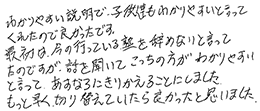 わかりやすい説明で、子供達もわかりやすいと言って
くれたので良かったです。
最初は、今の行っている塾を辞めないと言って
たのですが、話を聞いて こっちの方が わかりやすい
と言って、あすなろにきりかえることにしました
もっと早く切り替えていたら良かったと思いました。